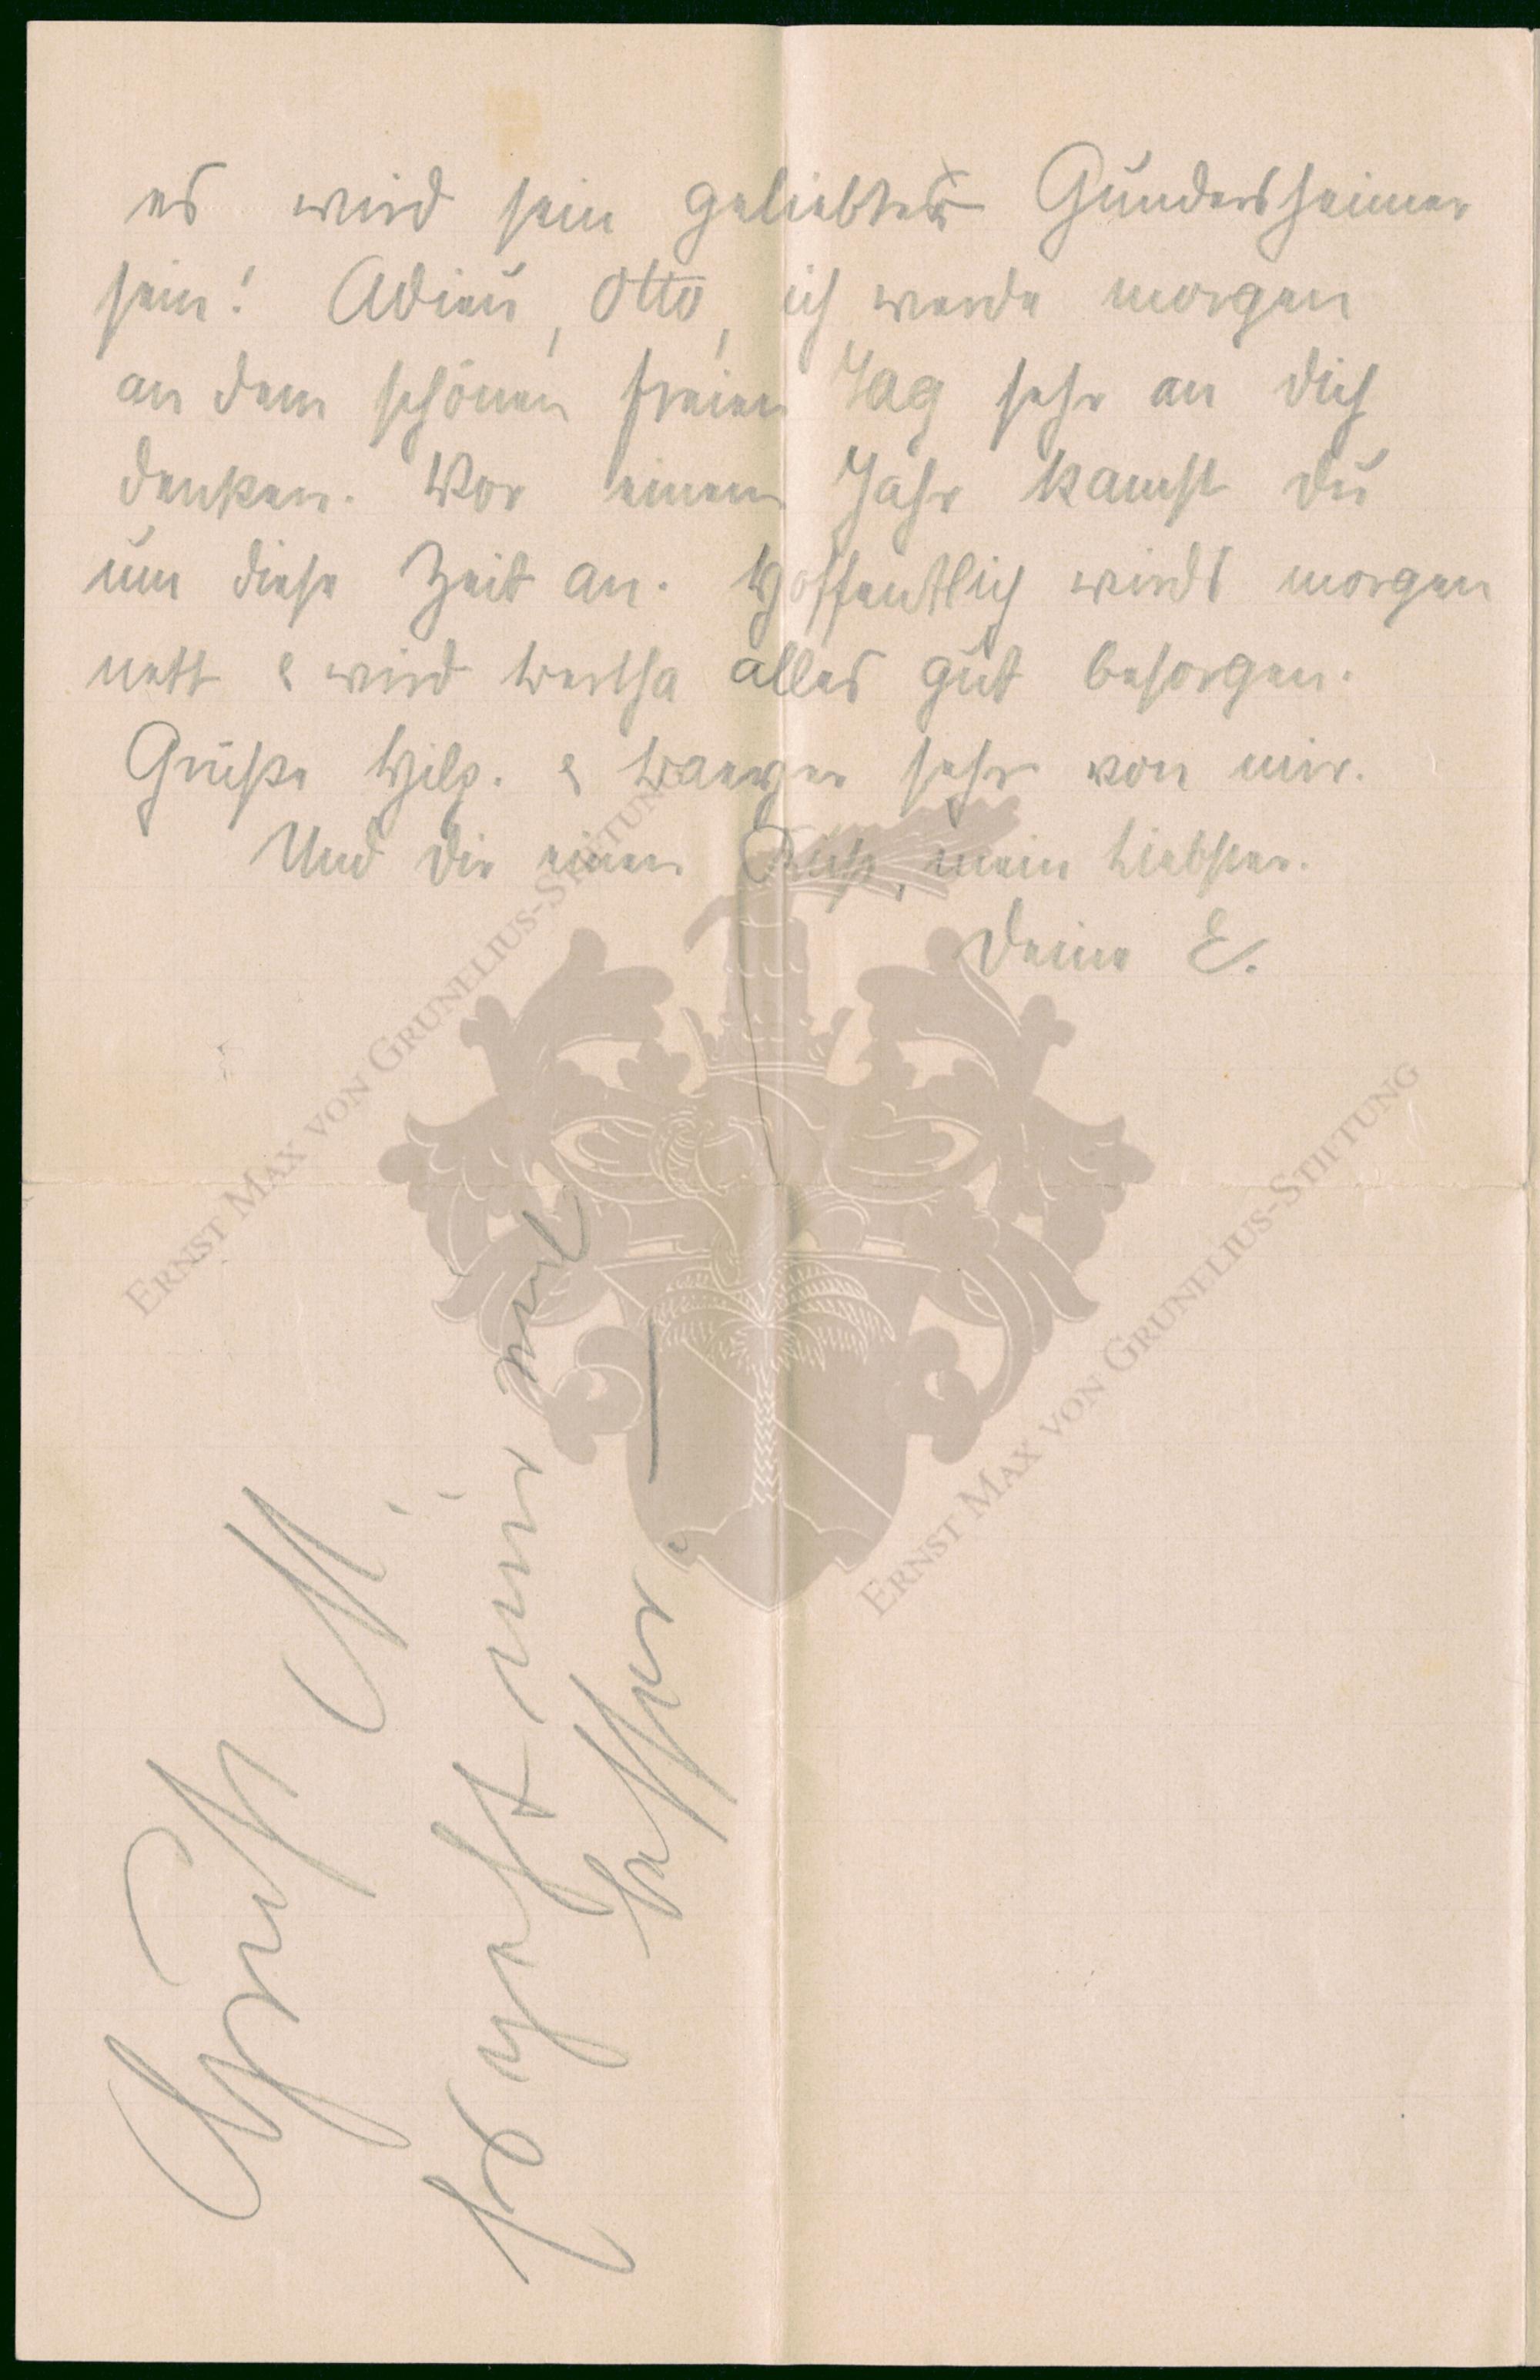 es wird sein geliebter Gundersheimer
sein! Adieu, Otto, ich werde morgen
an dem schönen freien Tag sehr an dich
denken. Vor einem Jahr kamst du
um diese Zeit an. Hoffentlich wirds morgen
nett & wird Bertha alles gut besorgen.
Grüße Hilg. & sehr von mir.
Und dir einen Kuß, mein Liebster.
Deine E.
ERNST MAX VON GRUNELIUS-STIFTUNG
ERNST MAX VON GRUNELIUS-STIFTUNG
Es geht mir viel
besser.